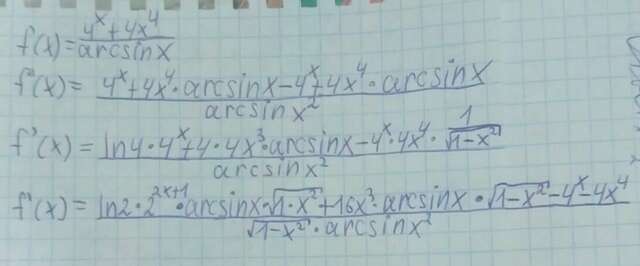 f(x) = (4^x + 4x^4)/(arcsinx)
f'(x) = (4^x + 4x^4 · arcsinx - 4^x + 4x^4 · arcsinx)/(arcsinx^2)
f'(x) = (ln4 · 4^x + 4 · 4x^3 · arcsinx - 4^x · 4x^4 · 1/√(1-x^2))/(arcsinx^2)
f'(x) = (ln2 · 2^(2x+1) · arcsinx · √(1·x^2) + 16x^3 · arcsinx · √(1-x^2) - 4^x - 4x^4)/(√(1-x^2) · arcsinx^2)